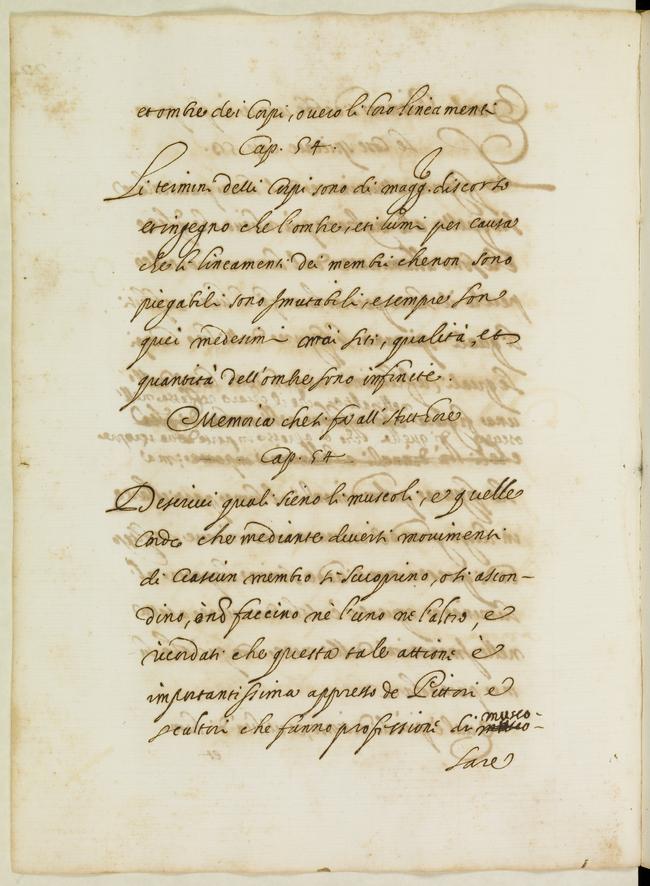 et ombre dei Corpi, overo li loro lineamenti
Cap. 54.
Li termini delli Corpi sono di magg. discorso
et ingegno che l'ombre, et i lumi per causa
che li lineamenti dei membri che non sono
piegabili sono immutabili, e sempre son
quei medesimi siti, qualità, et
quantità dell'ombre sono infinite.
Memoria che si fa all'Authore
Cap. 54
Descrivi quali sieno li muscoli, e quelle
corde che mediante diversi movimenti
di ciascun membro si scuoprino, o si ascon-
dino, ò nõ faccino nè l'uno nè l'altro, e
ricordati che questa tale attione è
importantissima appresso de Pittori e
scultori che fanno professione di musco-
lare